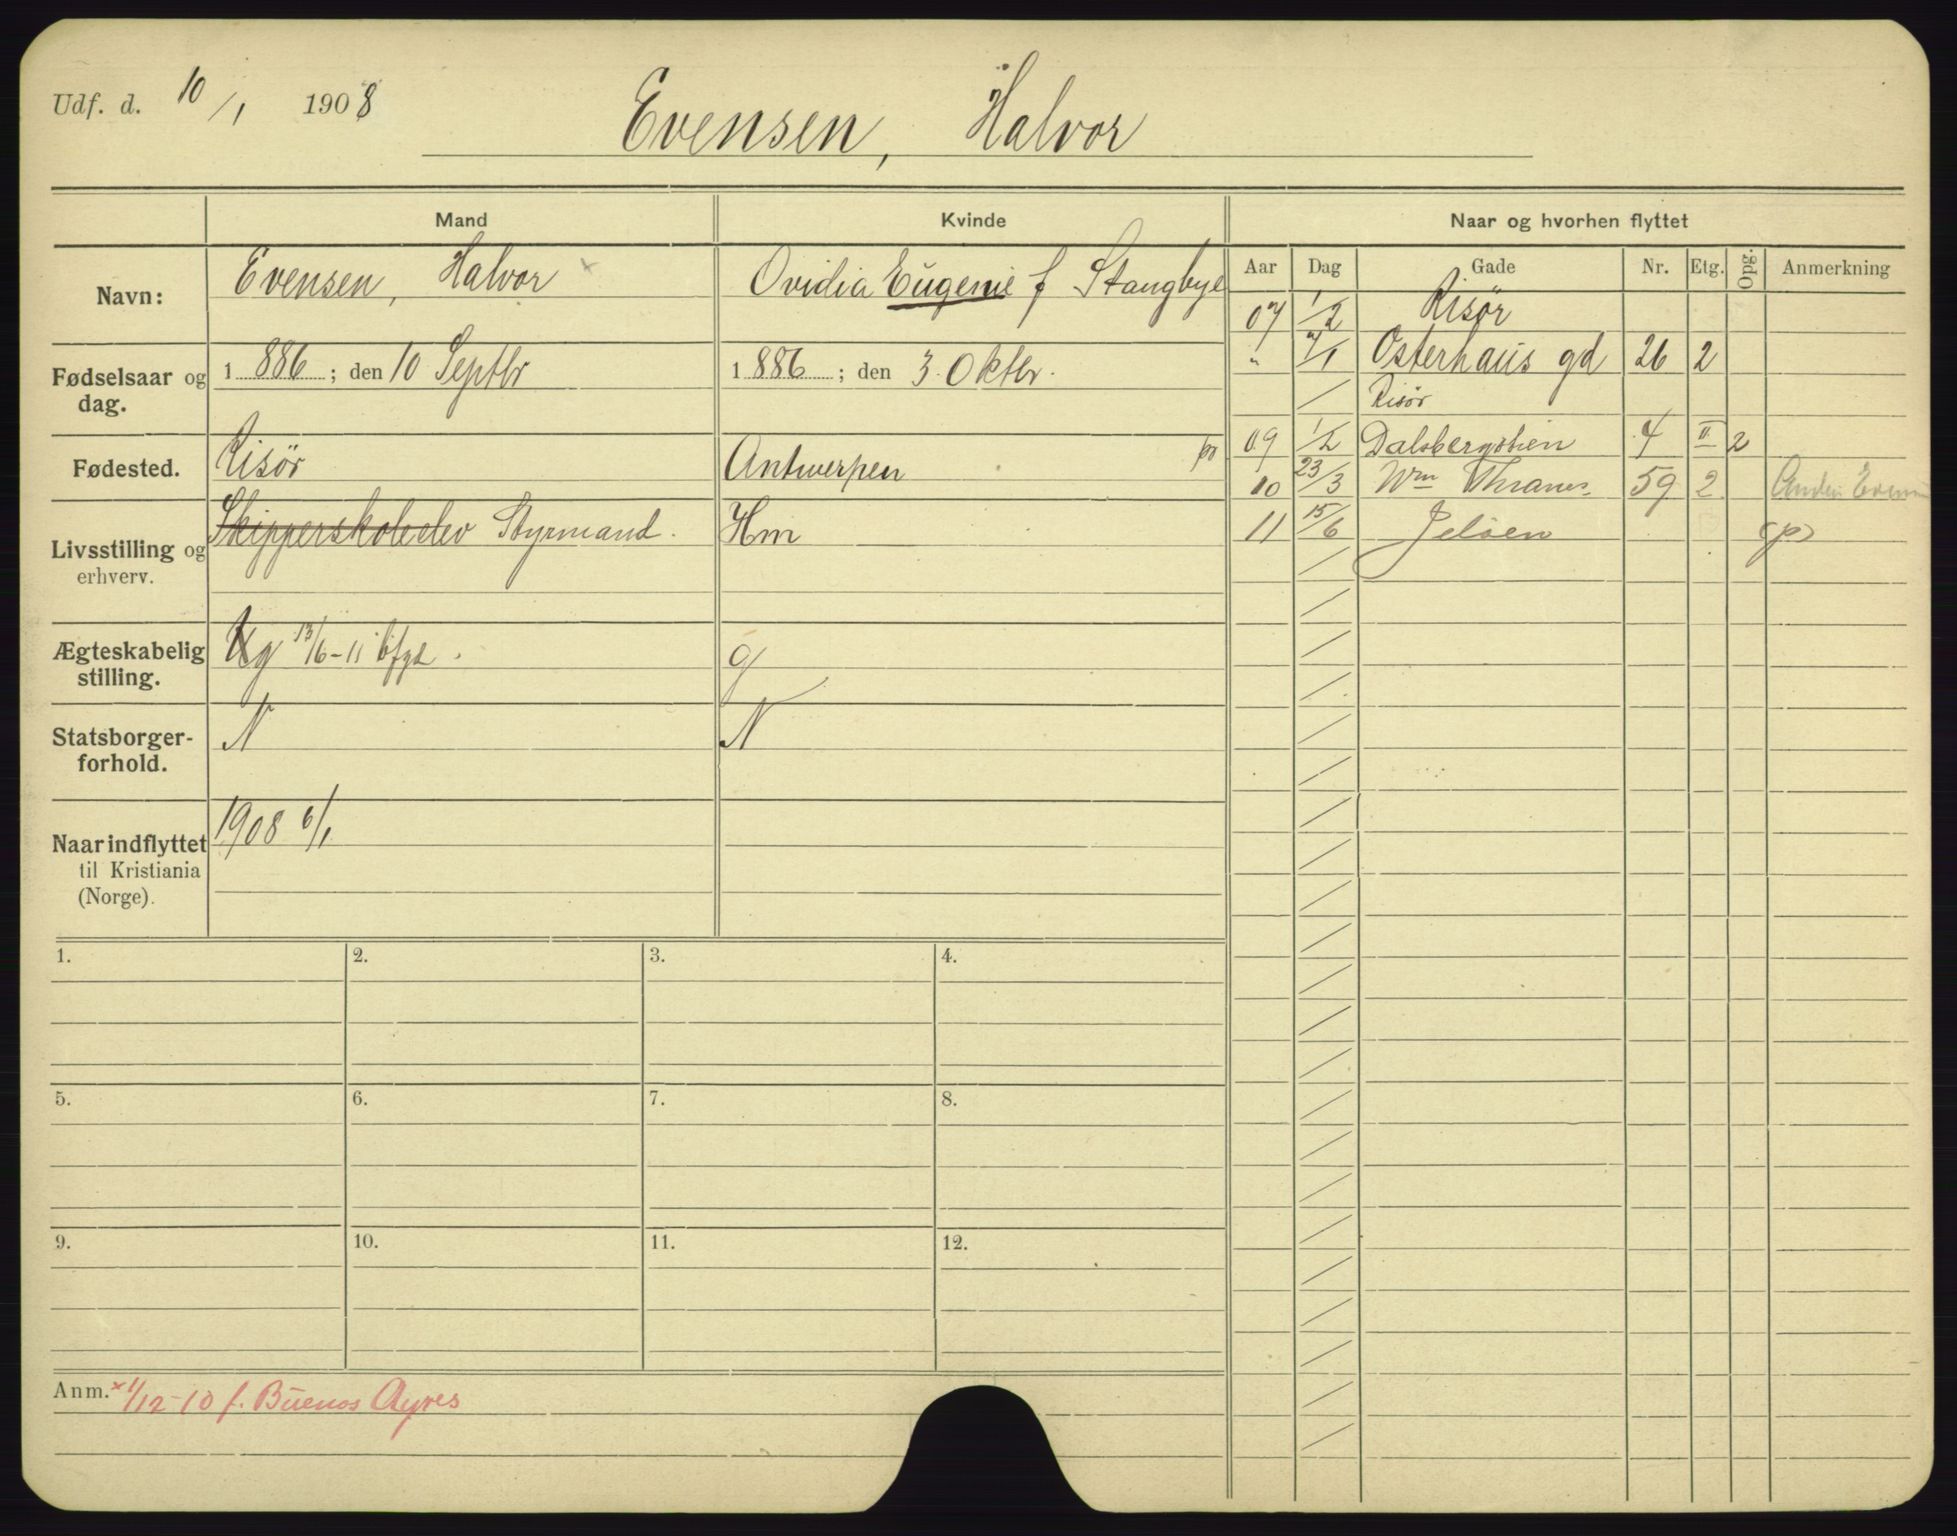 Udf. d. 10/1 1908
Evensen, Halvor
Mand Kvinde Naar og hvorhen flyttet
Navn: Evensen, Halvor × Ovidia Eugenie f Stangbye
Fødselsaar og dag. 1886; den 10 Septbr 1886; den 3 Oktbr.
Fødested. Risör Antwerpen
Livsstilling og erhverv. Skipperskoleelev Styrmand. Hm
Ægteskabelig stilling. Ug 13/6-11 g
Statsborgerforhold. N N
Naar indflyttet til Kristiania (Norge). 1908 6/1
Aar Dag Gade Nr. Etg. Opg. Anmerkning
07 1/2 Risør
" 7/1 Osterhaus gd 26 2
/ Risør
09 1/2 Dalsbergstien 4 II 2
10 23/3 Wm Thranes 59 2
11 15/6 Jeløen (p)
1. 2. 3. 4.
5. 6. 7. 8.
9. 10. 11. 12.
Anm. × 1/12-10 f. Buenos Ayres